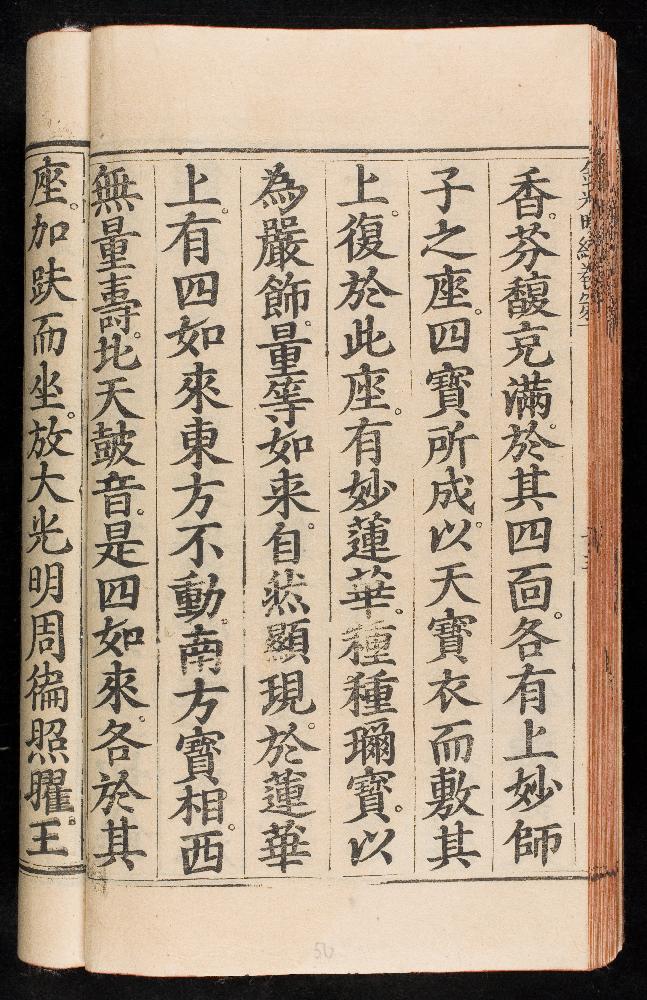 香。芬馥充滿。於其四面。各有上妙師
子之座。四寶所成。以天寶衣而敷其
上。復於此座。有妙蓮華。種種珎寶。以
為嚴飾。量等如来。自然顯現。於蓮華
上。有四如來東方不動。南方寶相。西
無量壽。北天皷音。是四如來。各於其
座。加趺而坐。放大光明周徧照曜。王
金光明經卷第一
50